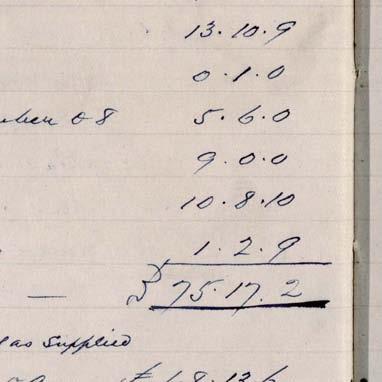 13.10.9
0.1.0
08 5.6.0
9.0.0
10.8.10
1.2.9
75.17.2
as Supplied
£ 8.13.6